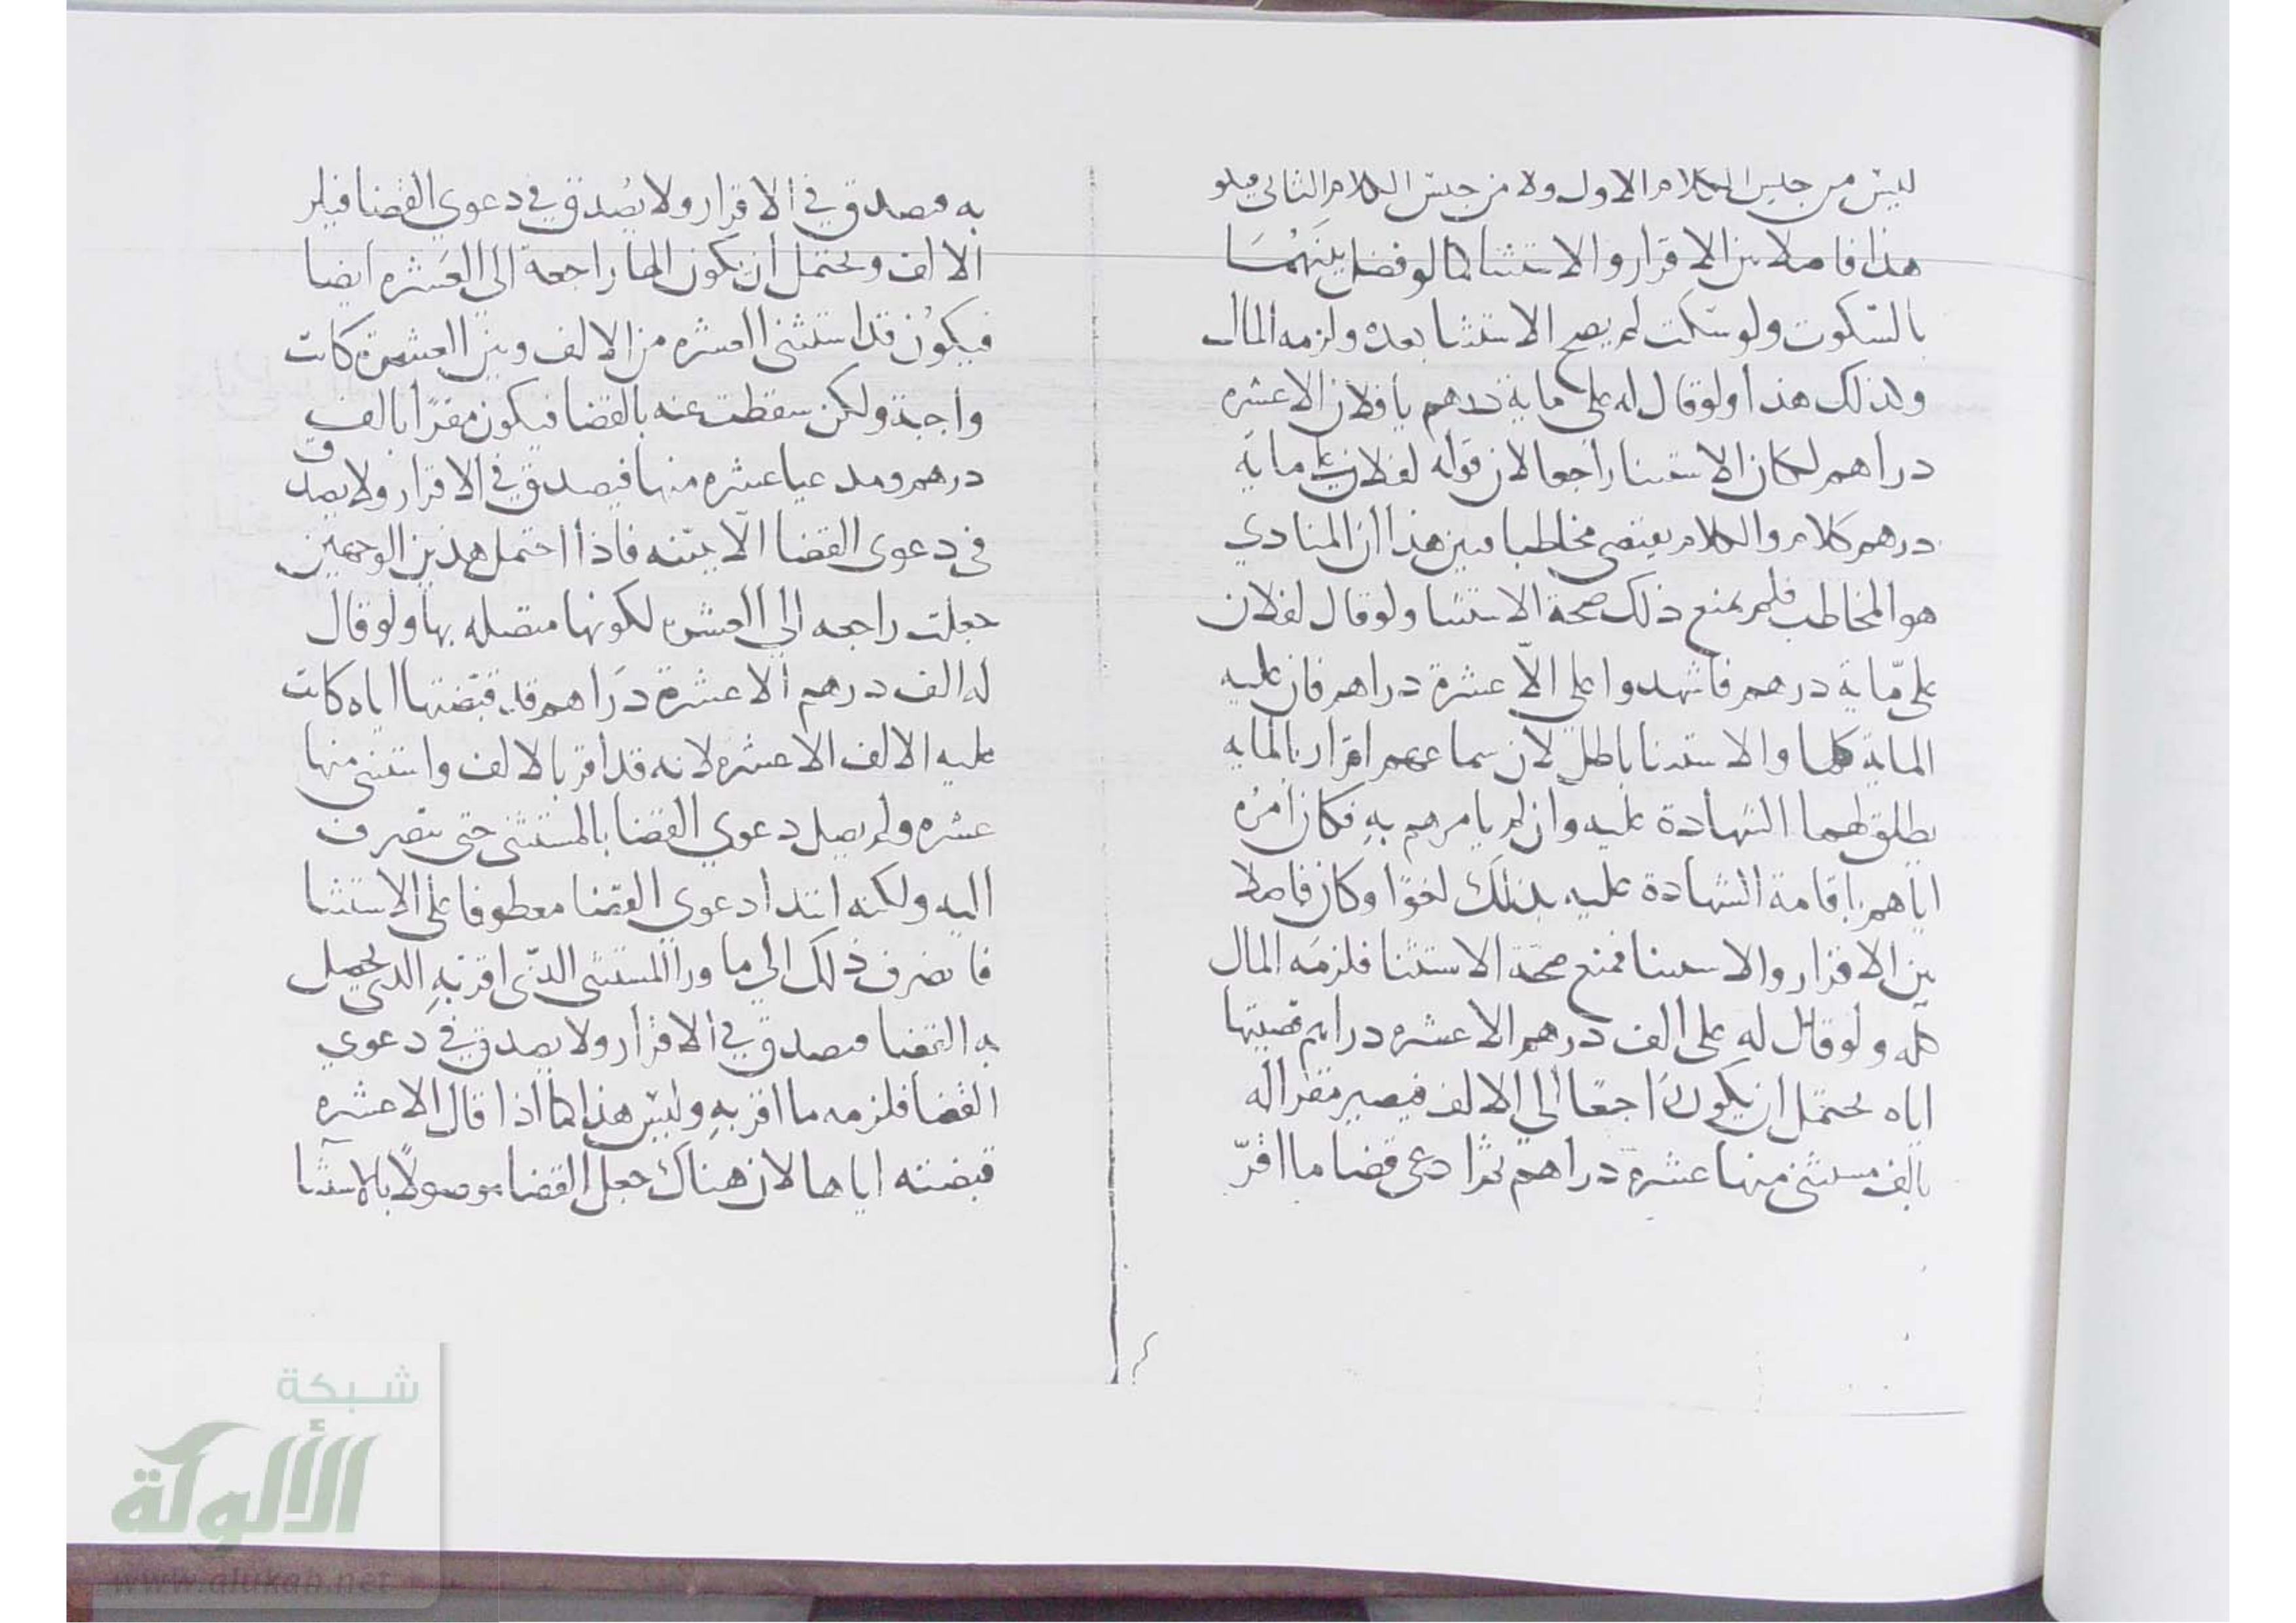 ليس من جنس الكلام الاول ولا من جنس الكلام الثاني
هذا فاصلا بين الاقرار والاستثنا كما لو فصل بينهما
بالسكوت ولو سكت لم يصح الاستثنا بعده ولزمه المال
وكذلك هذا ولو قال له على ماية درهم يا فلان الا عشره
دراهم لكان الاستثنا راجعا لان قوله لفلان على ماية
درهم كلام والكلام يقتضى مخاطبا فبين هذا ان المنادي
هو المخاطب فلم يمنع ذلك صحة الاستثنا ولو قال لفلان
على ماية درهم فاشهدوا على الا عشرة دراهم فان عليه
الماية كلها والاستثنا باطل لان سماعهم اقرار بالمايه
يطلق لهما الشهادة عليه وان لم يامرهم به فكان امره
اياهم باقامة الشهادة عليه بذلك لغوا وكان فاصلا
بين الاقرار والاستثنا فمنع صحة الاستثنا فلزمه المال
كله ولو قال له على الف درهم الا عشره دراهم قضيتها
اياه يحتمل ان يكون راجعا الى الالف فيصير مقرا له
بالف مستثنى منها عشرة دراهم ثم ادعى قضا ما اقر
به فصدق في الاقرار ولا يصدق في دعوي القضا فيلزم
الالف ويحتمل ان يكون الها راجعة الي العشره ايضا
فيكون قد استثنى العشره من الالف وبين العشرة كانت
واجبة ولكن سقطت عنه بالقضا فيكون مقرا بالف
درهم ومدعيا عشره منها فيصدق في الاقرار ولا يصدق
في دعوى القضا الا ببينه فاذا احتمل هذين الوجهين
جعلت راجعه الي العشره لكونها متصله بها ولو قال
له الف درهم الا عشرة دراهم قد قبضتها اياه كانت
عليه الالف الا عشره لانه قد اقر بالالف واستثنى منها
عشره ولم يصل دعوي القضا بالمستثنى حتى ينصرف
اليه ولكنه ابتدا دعوى القضا معطوفا على الاستثنا
فانصرف ذلك الي ما ورا المستثنى الذي اقر به الذي يحصل
به القضا فيصدق في الاقرار ولا يصدق في دعوي
القضا فلزمه ما اقر به وليس هذا كما اذا قال الا عشره
قبضته اياها لان هناك جعل القضا موصولا بالاستثنا
شبكة
الألوكة
www.alukah.net